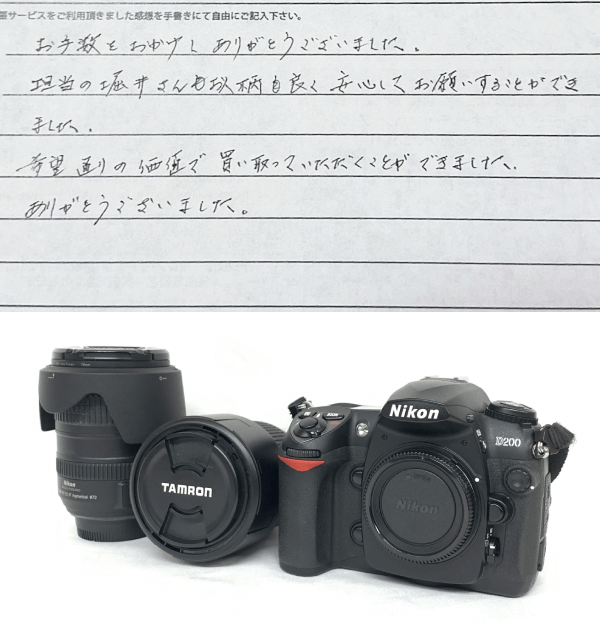 サービスをご利用頂きました感想を手書きにて自由にご記入下さい。
お手数をおかけし ありがとうございました。
担当の堀井さんもお人柄も良く 安心して お願いすることができ
ました。
希望通りの価値で 買い取っていただくことができました。
ありがとうございました。
Nikon
D200
Nikon
TAMRON
Nikon